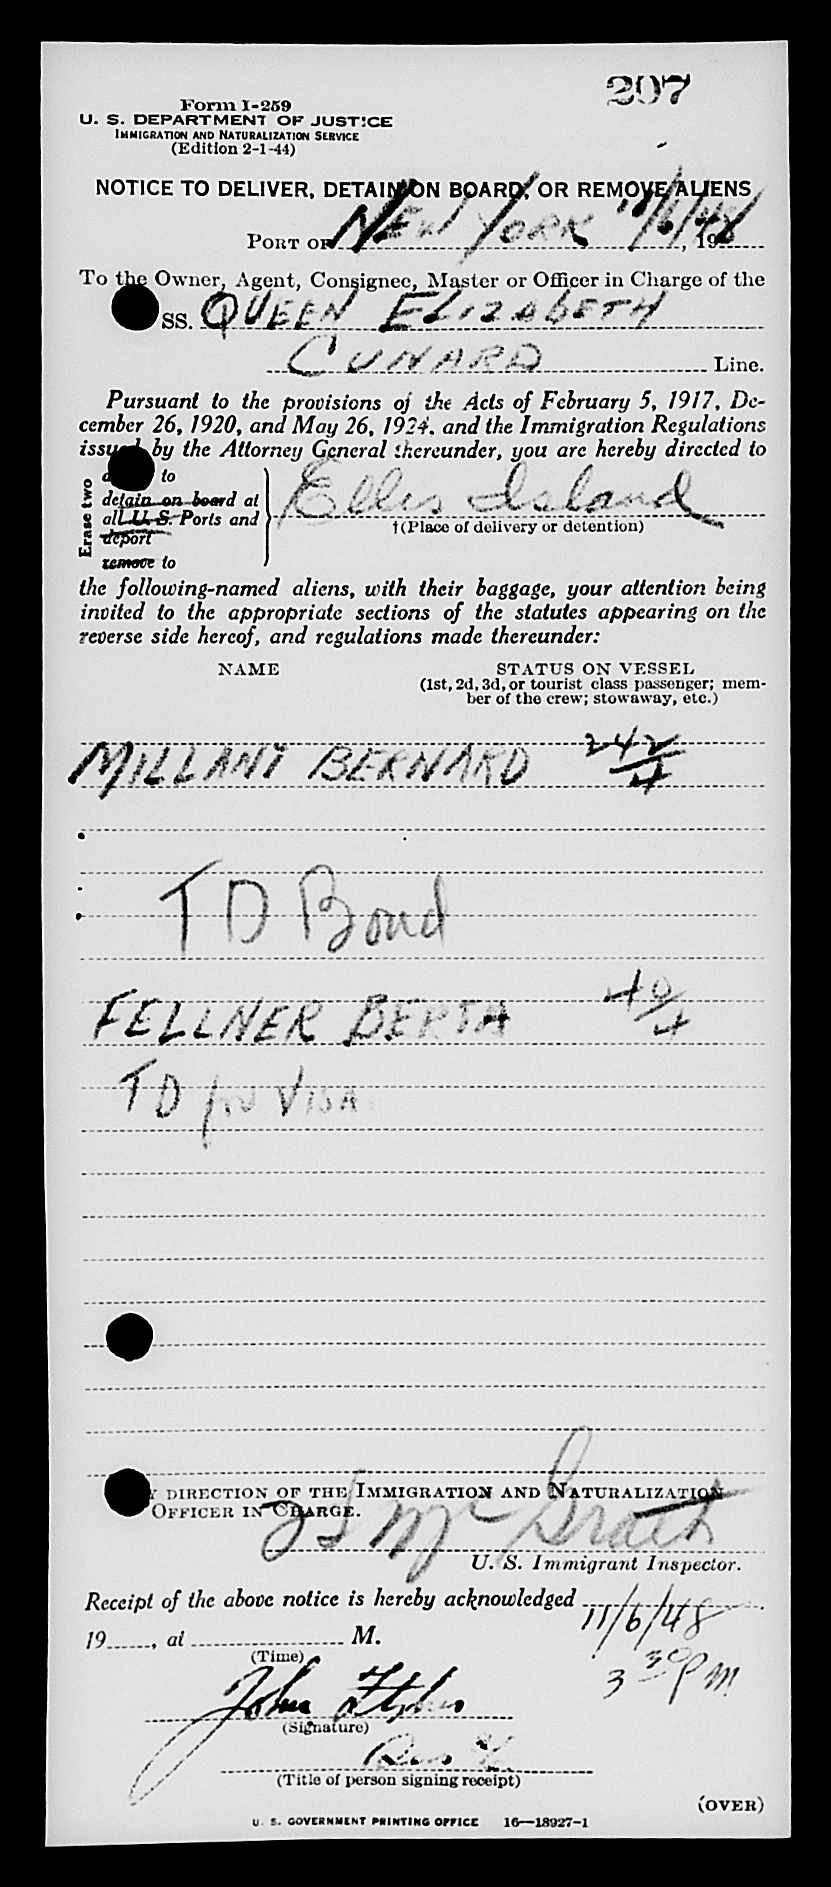 207
Form I-259
U. S. DEPARTMENT OF JUSTICE
IMMIGRATION AND NATURALIZATION SERVICE
(Edition 2-1-44)
NOTICE TO DELIVER, DETAIN ON BOARD, OR REMOVE ALIENS
PORT OF NEW YORK 11/6/48, 19
To the Owner, Agent, Consignee, Master or Officer in Charge of the
SS. QUEEN ELIZABETH
CUNARD Line.
Pursuant to the provisions of the Acts of February 5, 1917, De-
cember 26, 1920, and May 26, 1924, and the Immigration Regulations
issued by the Attorney General thereunder, you are hereby directed to
Erase two
to
detain on board at
all U. S. Ports and
deport
remove to
Ellis Island
†(Place of delivery or detention)
the following-named aliens, with their baggage, your attention being
invited to the appropriate sections of the statutes appearing on the
reverse side hereof, and regulations made thereunder:
NAME STATUS ON VESSEL
(1st, 2d, 3d, or tourist class passenger; mem-
ber of the crew; stowaway, etc.)
MILLANT BERNARD 242/4
TD Bond
FELLNER BERTA 40/4
TD for VISA
BY DIRECTION OF THE IMMIGRATION AND NATURALIZATION
OFFICER IN CHARGE.
McGrath
U. S. Immigrant Inspector.
Receipt of the above notice is hereby acknowledged 11/6/48
19, at M. 3 30 PM
(Time)
John
(Signature)
(Title of person signing receipt)
(OVER)
U. S. GOVERNMENT PRINTING OFFICE 16—18927-1